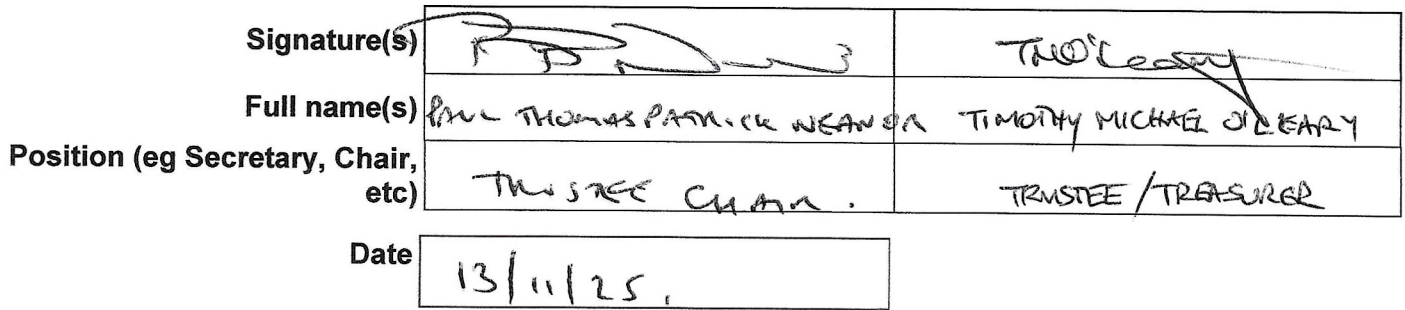 Signature(s) TMO'Leary
Full name(s) PAUL THOMAS PATRICK TIMOTHY MICHAEL O'LEARY
Position (eg Secretary, Chair,
etc) TRUSTEE CHAIR. TRUSTEE/TREASURER
Date 13/11/25.